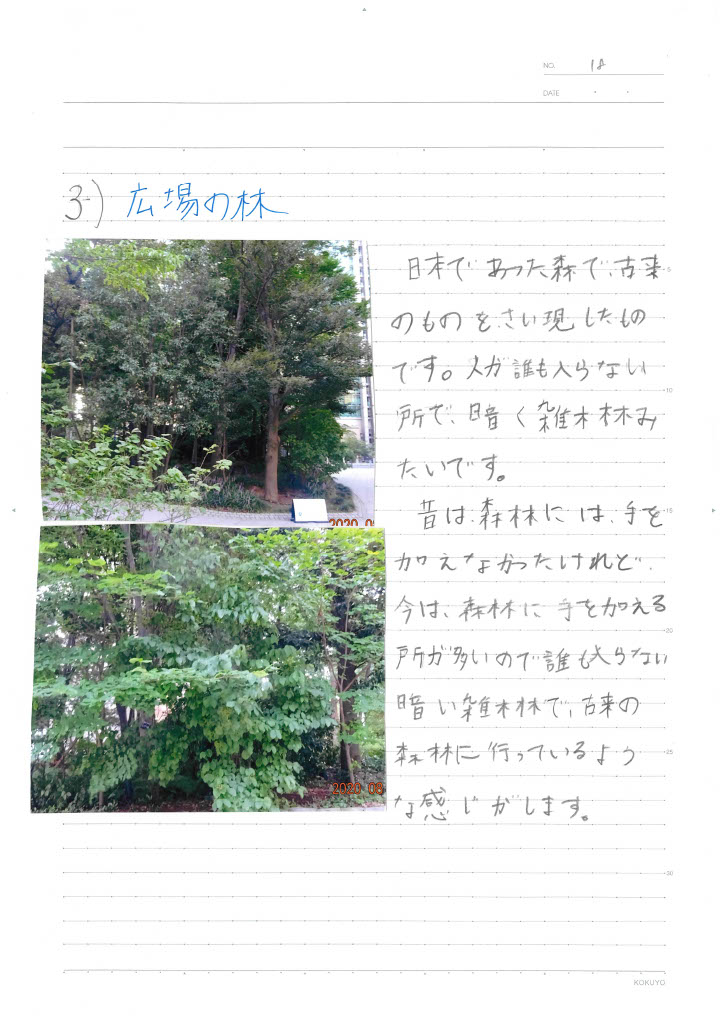 NO. 18
DATE ・ ・
3) 広場の林
日本であった森で、古来
のものをさい現したもの
です。人が誰も入らない
所で、暗く雑木林み
たいです。
昔は、森林には、手を
加えなかったけれど、
今は、森林に手を加える
所が多いので誰も入らない
暗い雑木林で、古来の
森林に行っているよう
な感じがします。
2020 0
2020 08
5
10
15
20
25
30
KOKUYO